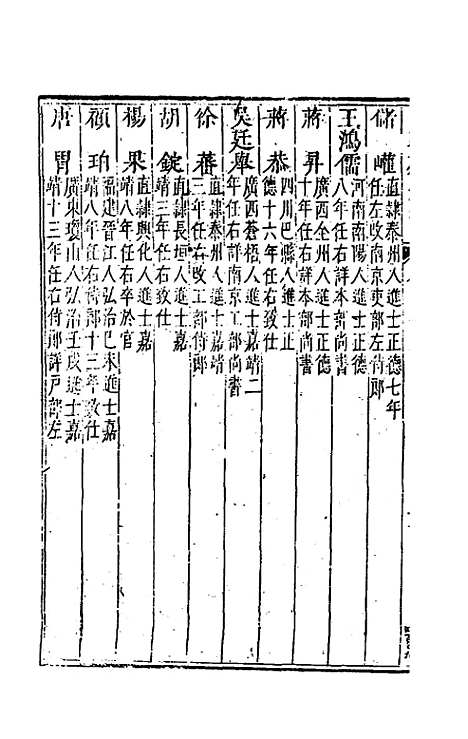 儲巏直隸泰州人進士正德七年
任左改南京吏部左侍郎
王鴻儒河南南陽人進士正德
八年任右詳本部尚書
蔣昇廣西全州人進士正德
十年任右詳本部尚書
蔣恭四川巴縣人進士正
德十六年任右致仕
吳廷舉廣西蒼梧人進士嘉靖二
年任右詳南京工部尚書
徐蕃直隸泰州人進士嘉靖
二年任右改工部侍郎
胡錠直隸長垣人進士嘉
靖三年任右致仕
楊果直隸興化人進士嘉
靖八年任右卒於官
顧珀福建晉江人弘治己未進士嘉
靖八年任右侍郎十三年致仕
唐胄廣東瓊山人弘治壬戌進士嘉
靖十三年任右侍郎詳戶部左